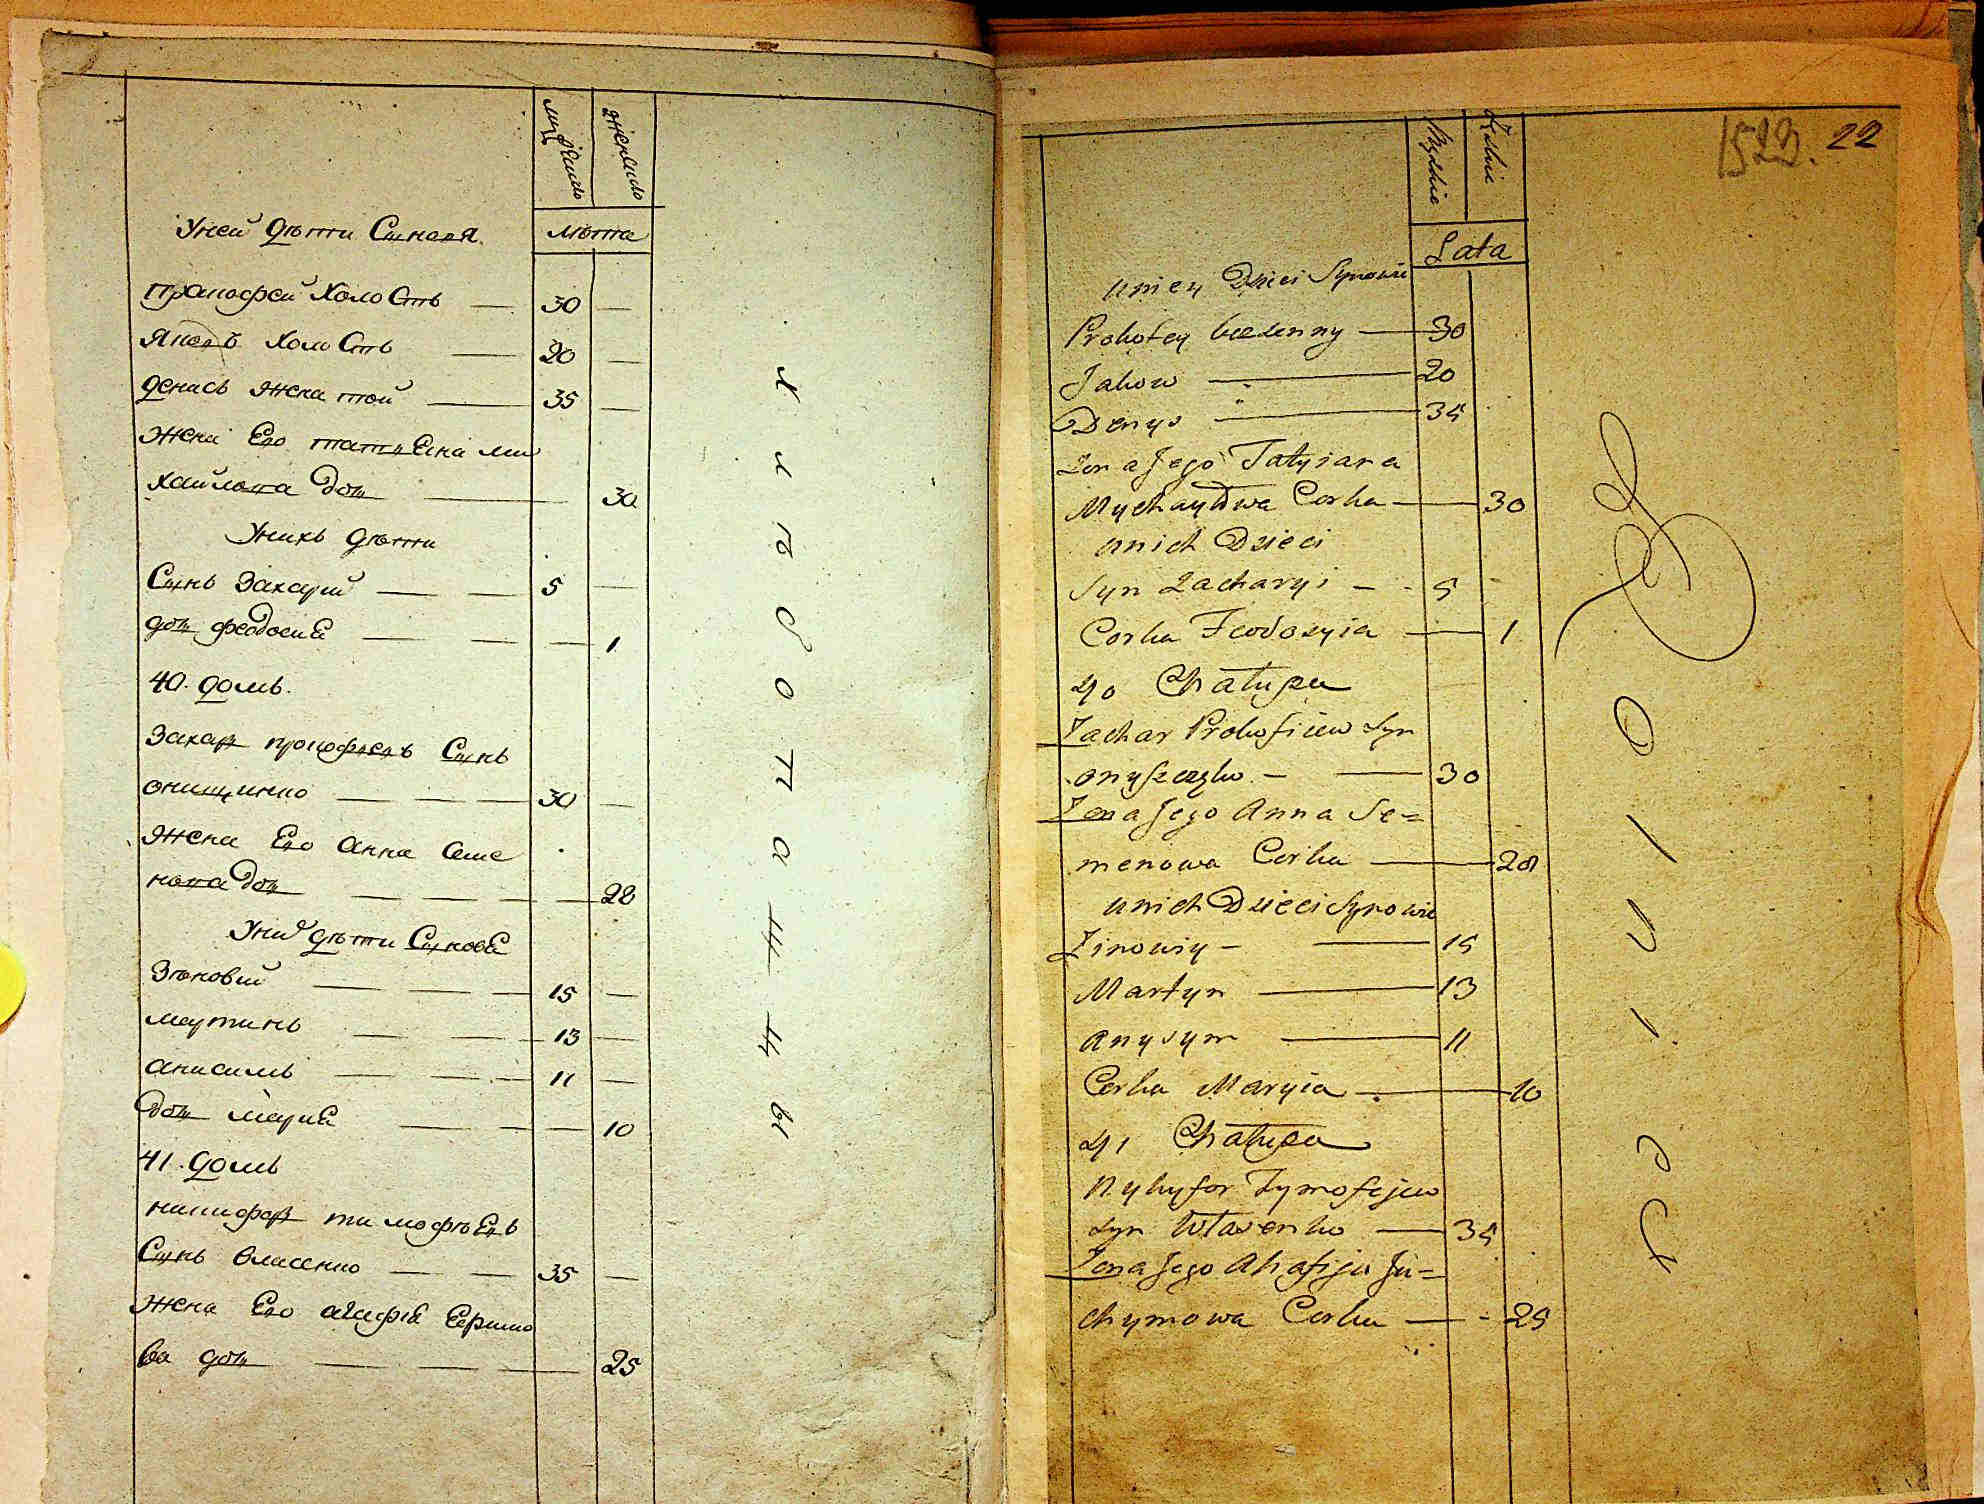 мужеско
женско
лѣта
Уней дѣти Сыновя
Прокофей холостъ — 30 —
Яковъ холостъ — 20 —
Денисъ женатой — 35 —
Жена Его татьяна ми
хайлова доч — 30
Унихъ дѣти
Сынъ Захарій — — 5 —
доч феодосия — — — 1
40. домъ.
Захар прокофьевъ Сынъ
онищенко — — — 30 —
Жена Его Анна Семе
нова доч — — — — 28
Уних дѣти Сынове
Зѣновий — — — 15 —
мартинъ — — — 13 —
анисимъ — — — 11 —
доч мария — — — 10
41. домъ
никифор тимофѣевъ
Сынъ власенко — — 35 —
Жена Его агафія Ефимо
ва доч — — — 25
1523. 22
Męzkie
Żeńskie
Lata
u niey Dzieci Synowie
Prokofey bezzenny — 30
Jakow — 20
Denys — 35
Zona Jego Tatyiana
Mychayłowa Corka — 30
u nich Dzieci
Syn Zacharyi — - 5 -
Corka Feodozyia — 1
40 Chałupa
Zachar Prokofiiew Syn
onyszczęko — — 30
Zona Jego Anna Se=
menowa Corka — 28
u nich Dzieci Synowie
Zinowiy — — 15
Martyn — 13
Anysym — 11
Corka Maryia — 10
41 Chałupa
Nykyfor Tymofejew
Syn Własenko — 35
Zona Jego Ahafija Ju=
chymowa Corka — - 25